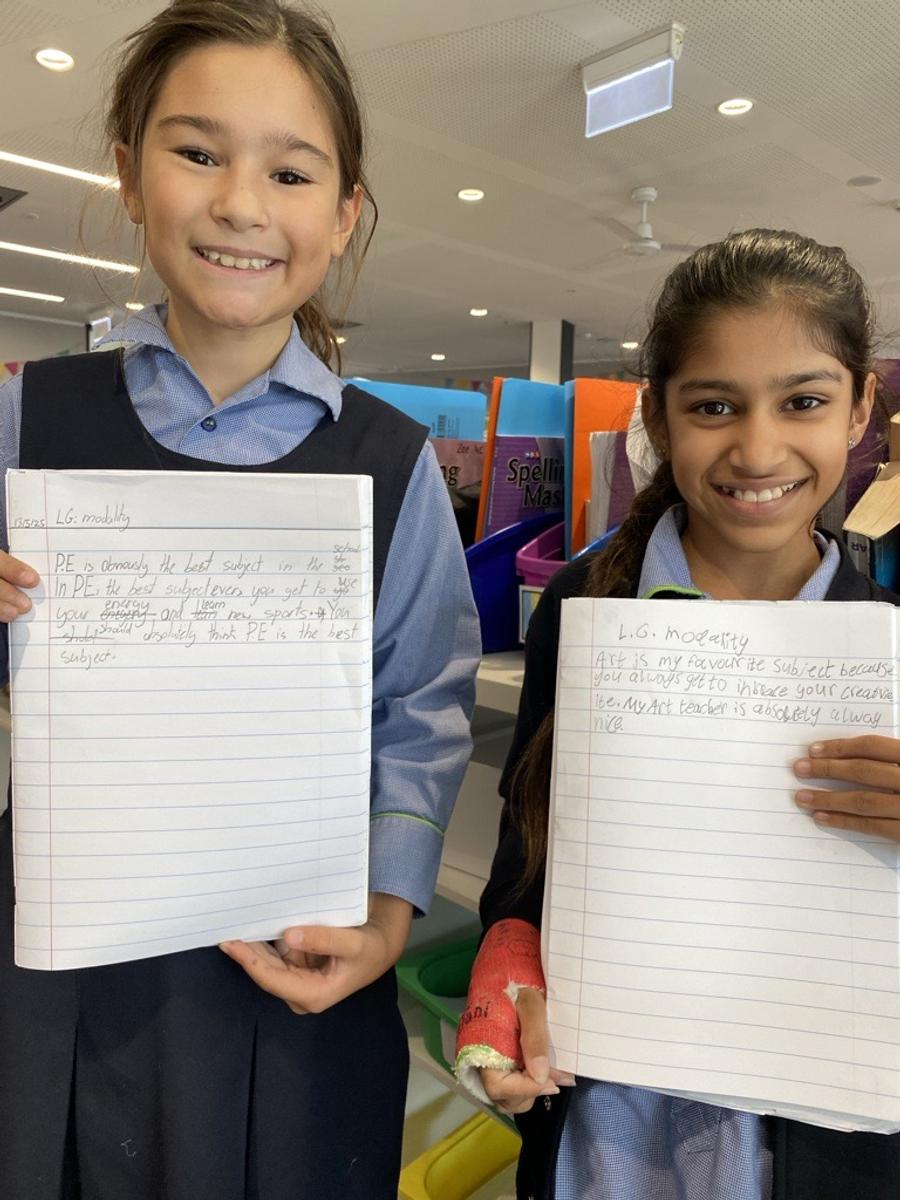 13/5/25 LG: modality
school
the
P.E is obviously the best subject in the
In PE, the best subject ever, you get to use
energy learn
your energy and new sports. You
should
absolutely think P.E is the best
subject.
L.G. modality
Art is my favourite subject because
you always get to inbrace your creative
ite. My Art teacher is absolutely alway
nice.
Spellin
Mas
Zoe
ng
AR
ani